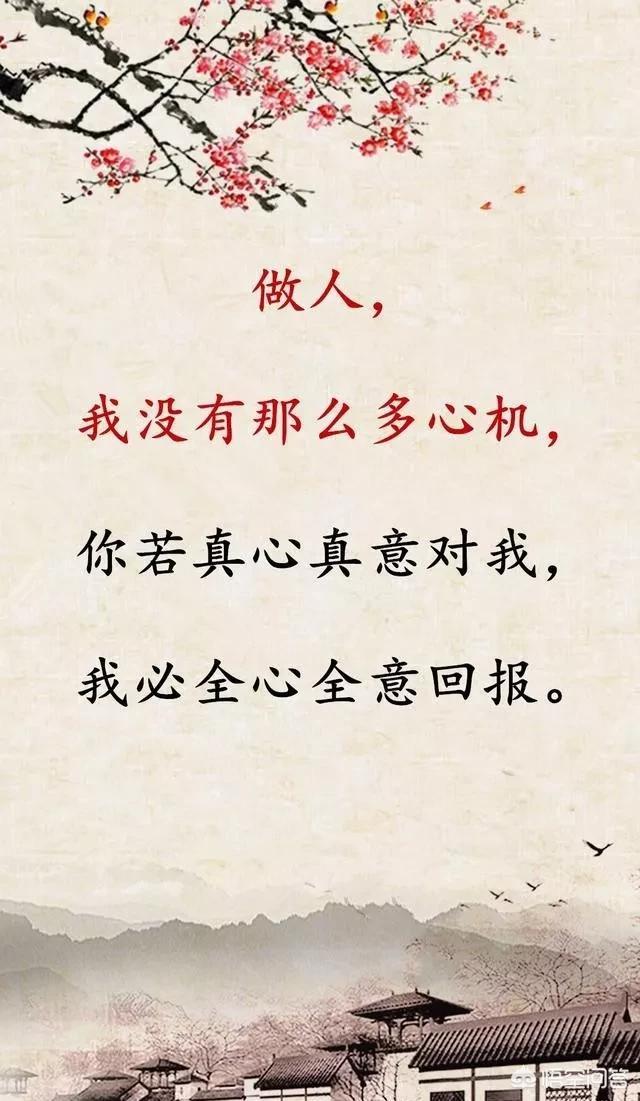 做人，
我没有那么多心机，
你若真心真意对我，
我必全心全意回报。
悟空问答